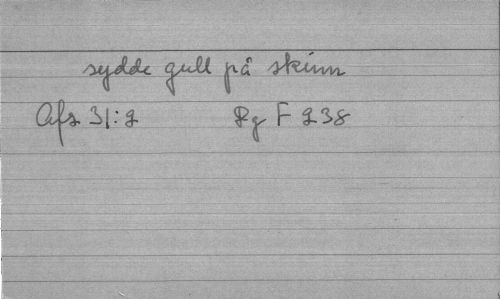 sydde gull på skinn
Afs 31:2 Rg F 238